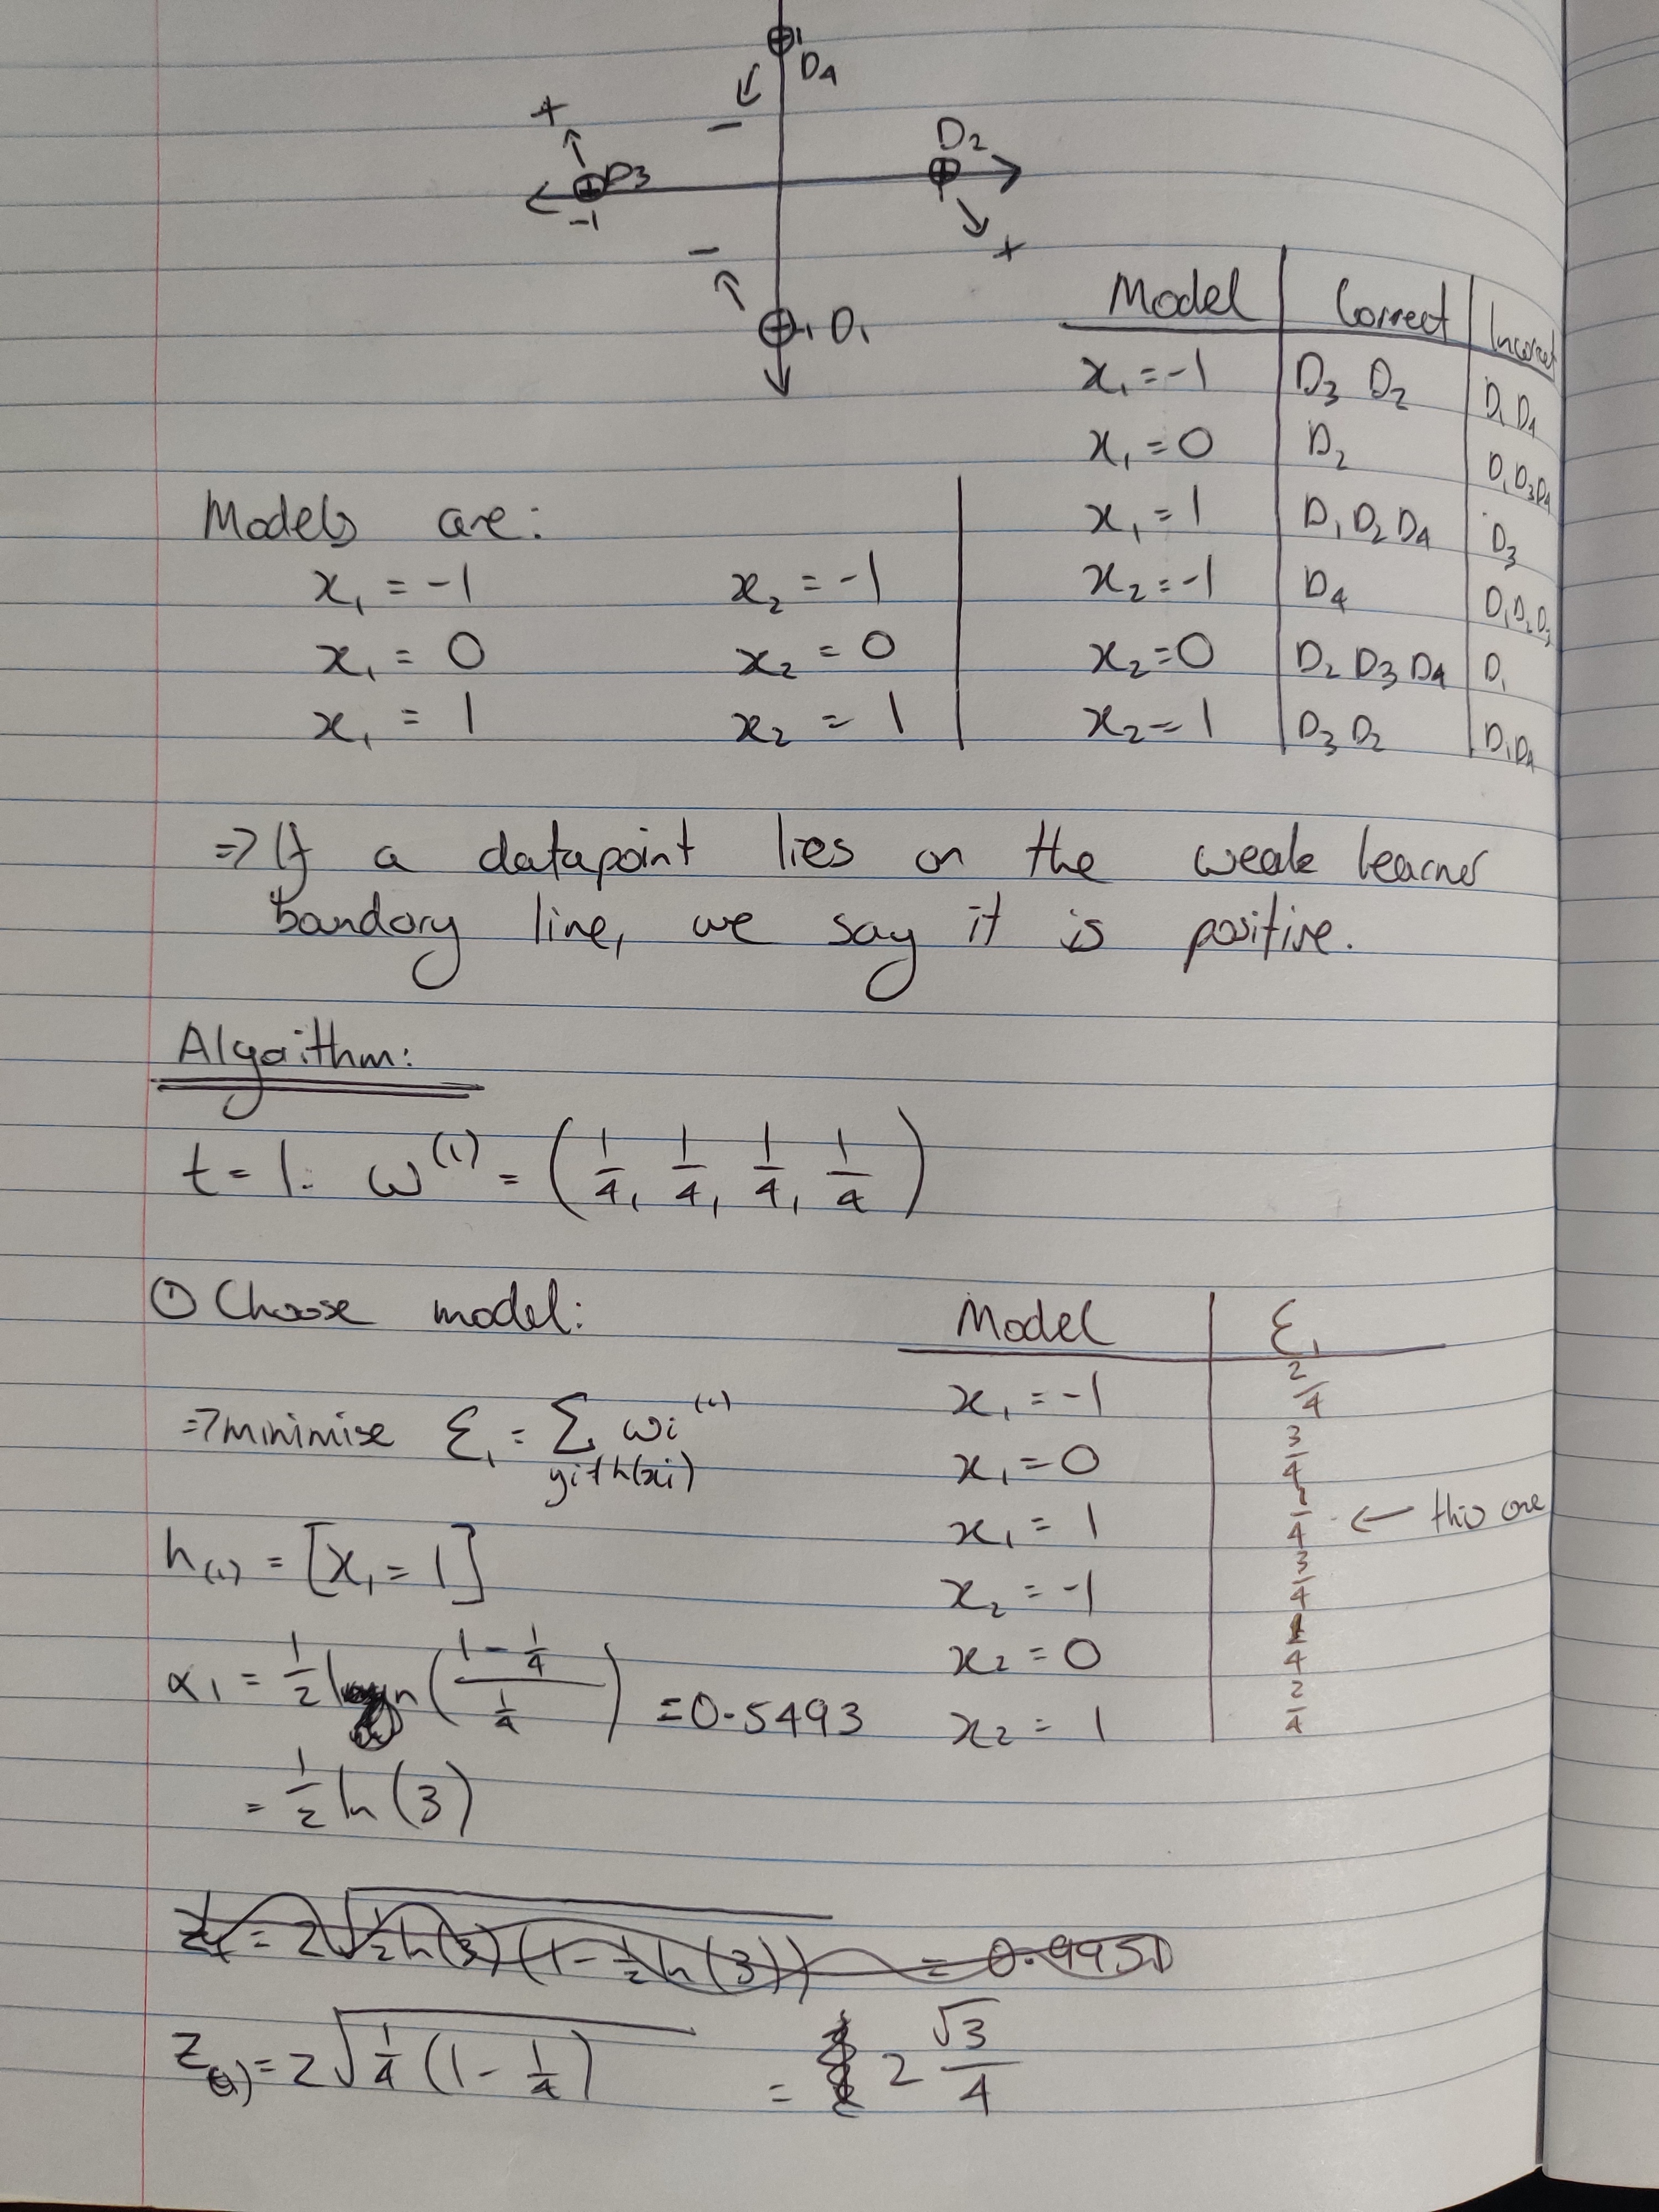 1
D4
+
−
D2
D3
-1
1
+
−
1 D1
Model | Correct | Incorrect
x₁ = -1 | D3 D2 | D1 D4
x₁ = 0 | D2 | D1 D3 D4
x₁ = 1 | D1 D2 D4 | D3
x₂ = -1 | D4 | D1 D2 D3
x₂ = 0 | D2 D3 D4 | D1
x₂ = 1 | D3 D2 | D1 D4
Models are:
x₁ = -1 x₂ = -1
x₁ = 0 x₂ = 0
x₁ = 1 x₂ = 1
=> If a datapoint lies on the weak learner
boundory line, we say it is positive.
Algorithm:
t = 1: ω⁽¹⁾ = (1/4, 1/4, 1/4, 1/4)
① Choose model:
=> minimise ε₁ = Σ ωi⁽¹⁾
yi≠h(xi)
h₍₁₎ = [x₁ = 1]
α₁ = 1/2 ln((1 - 1/4)/(1/4)) = 0.5493
= 1/2 ln(3)
Model | ε₁
x₁ = -1 | 2/4
x₁ = 0 | 3/4
x₁ = 1 | 1/4 ← this one
x₂ = -1 | 3/4
x₂ = 0 | 1/4
x₂ = 1 | 2/4
Z₁ = 2√(1/2 ln(3)(1 - 1/2 ln(3))) = 0.9950
Z₍₁₎ = 2√(1/4 (1 - 1/4)) = 2 √3/4